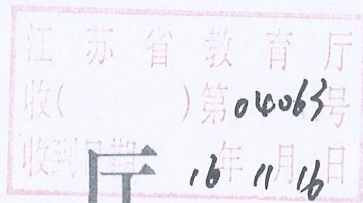 江苏省教育厅
收( )第04063号
收到日期 16年11月16日
厅